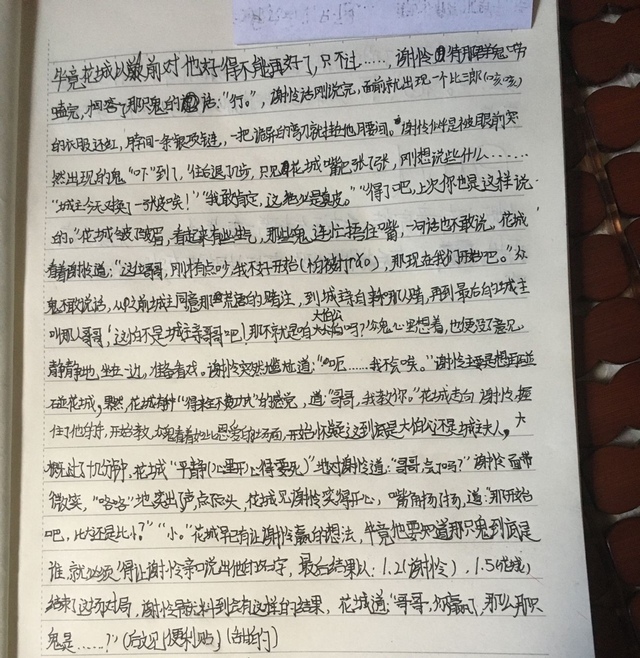 毕竟花城以前对他好得不能再好了,只不过……,谢怜待那群鬼
嗑完,回答那只鬼的话:"行。",谢怜话刚说完,面前就出现一个比三郎(咳咳)
的衣服还红,脖间一条银项链,一把诡异的弯刀就挂他腰间。谢怜似乎是被眼前突
然出现的鬼"吓"到了,往后退了几步,只见花城嘴巴张了张,刚想说些什么……
"城主今天又换了一张皮唉!""我敢肯定,这绝必是真皮。""得了吧,上次你也是这样说
的。"花城皱了皱眉,看起来有些生气,那些鬼连忙捂住嘴,一句话也不敢说。花城
看着谢怜道:"这位哥哥,刚才有点吵,我不好开始,那现在我们开始吧。"众
鬼不敢说话,从之前城主同意那荒诞的赌注,到城主亲自那么赌,再到最后的城主
叫那人哥哥,这怕不是城主亲哥哥吧!那不就是咱大伯公吗?众鬼心里想着,也便没了意见,
静静地,坐在一边,准备看戏。谢怜突然尴尬道:"呃……我不会唉。"谢怜主要是想再碰
碰花城,果然,花城有种"得来全不费功夫"的感觉,道:"哥哥,我教你。"花城走向谢怜,握
住了他的手,开始教,众鬼看着如此恩爱的场面,开始怀疑这到底是大伯公还是城主夫人,大
概过了十几分钟,花城"平静(心里开心得要死)"地对谢怜道:"哥哥,会了吗?"谢怜面带
微笑,"咯咯"地笑出了声,点点头,花城见谢怜笑得开心,嘴角扬了扬,道:"那开始
吧,比大还是比小?""小。"花城早已有让谢怜赢的想法,毕竟他要知道那只鬼到底是
谁,就必须得让谢怜亲口说出他的名字,最后结果以:1.2(谢怜),1.5(花城)
结束了这场对局,谢怜早就料到会有这样的结果,花城道:"哥哥,你赢了,那么,那只
鬼是……?"(后文见便利贴)